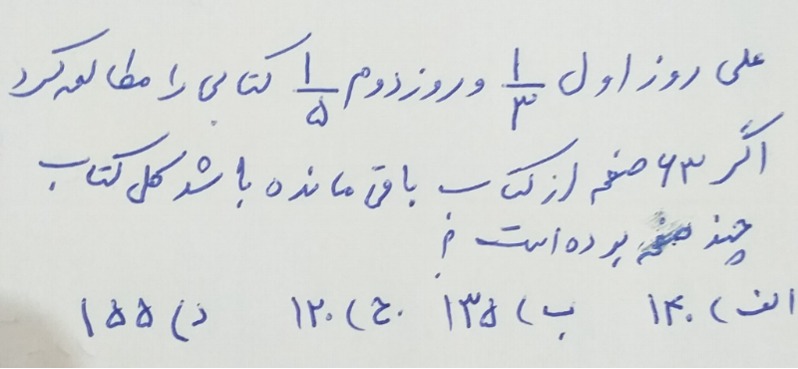 علی روز اول ۱/۳ و روز دوم ۱/۵ کتابی را مطالعه کرد
اگر ۶۳ صفحه از کتاب باقی مانده باشد کل کتاب
چند صفحه بوده است ؟
الف) ۱۴۰ ب) ۱۳۵ ج) ۱۲۰ د) ۱۵۵